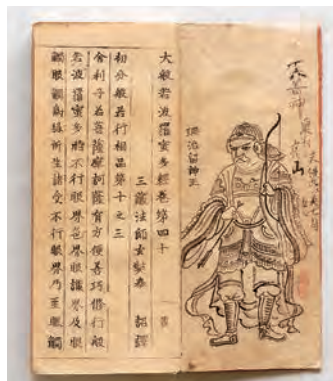 善神
山
留神王
大般若波羅蜜多經卷第四十
三藏法師玄奘奉 詔譯
初分般若行相品第十之三
舍利子若菩薩摩訶薩有方便善巧脩行般
若波羅蜜多時不行眼界色界眼識界及眼
觸眼觸為緣所生諸受不行眼界乃至眼觸